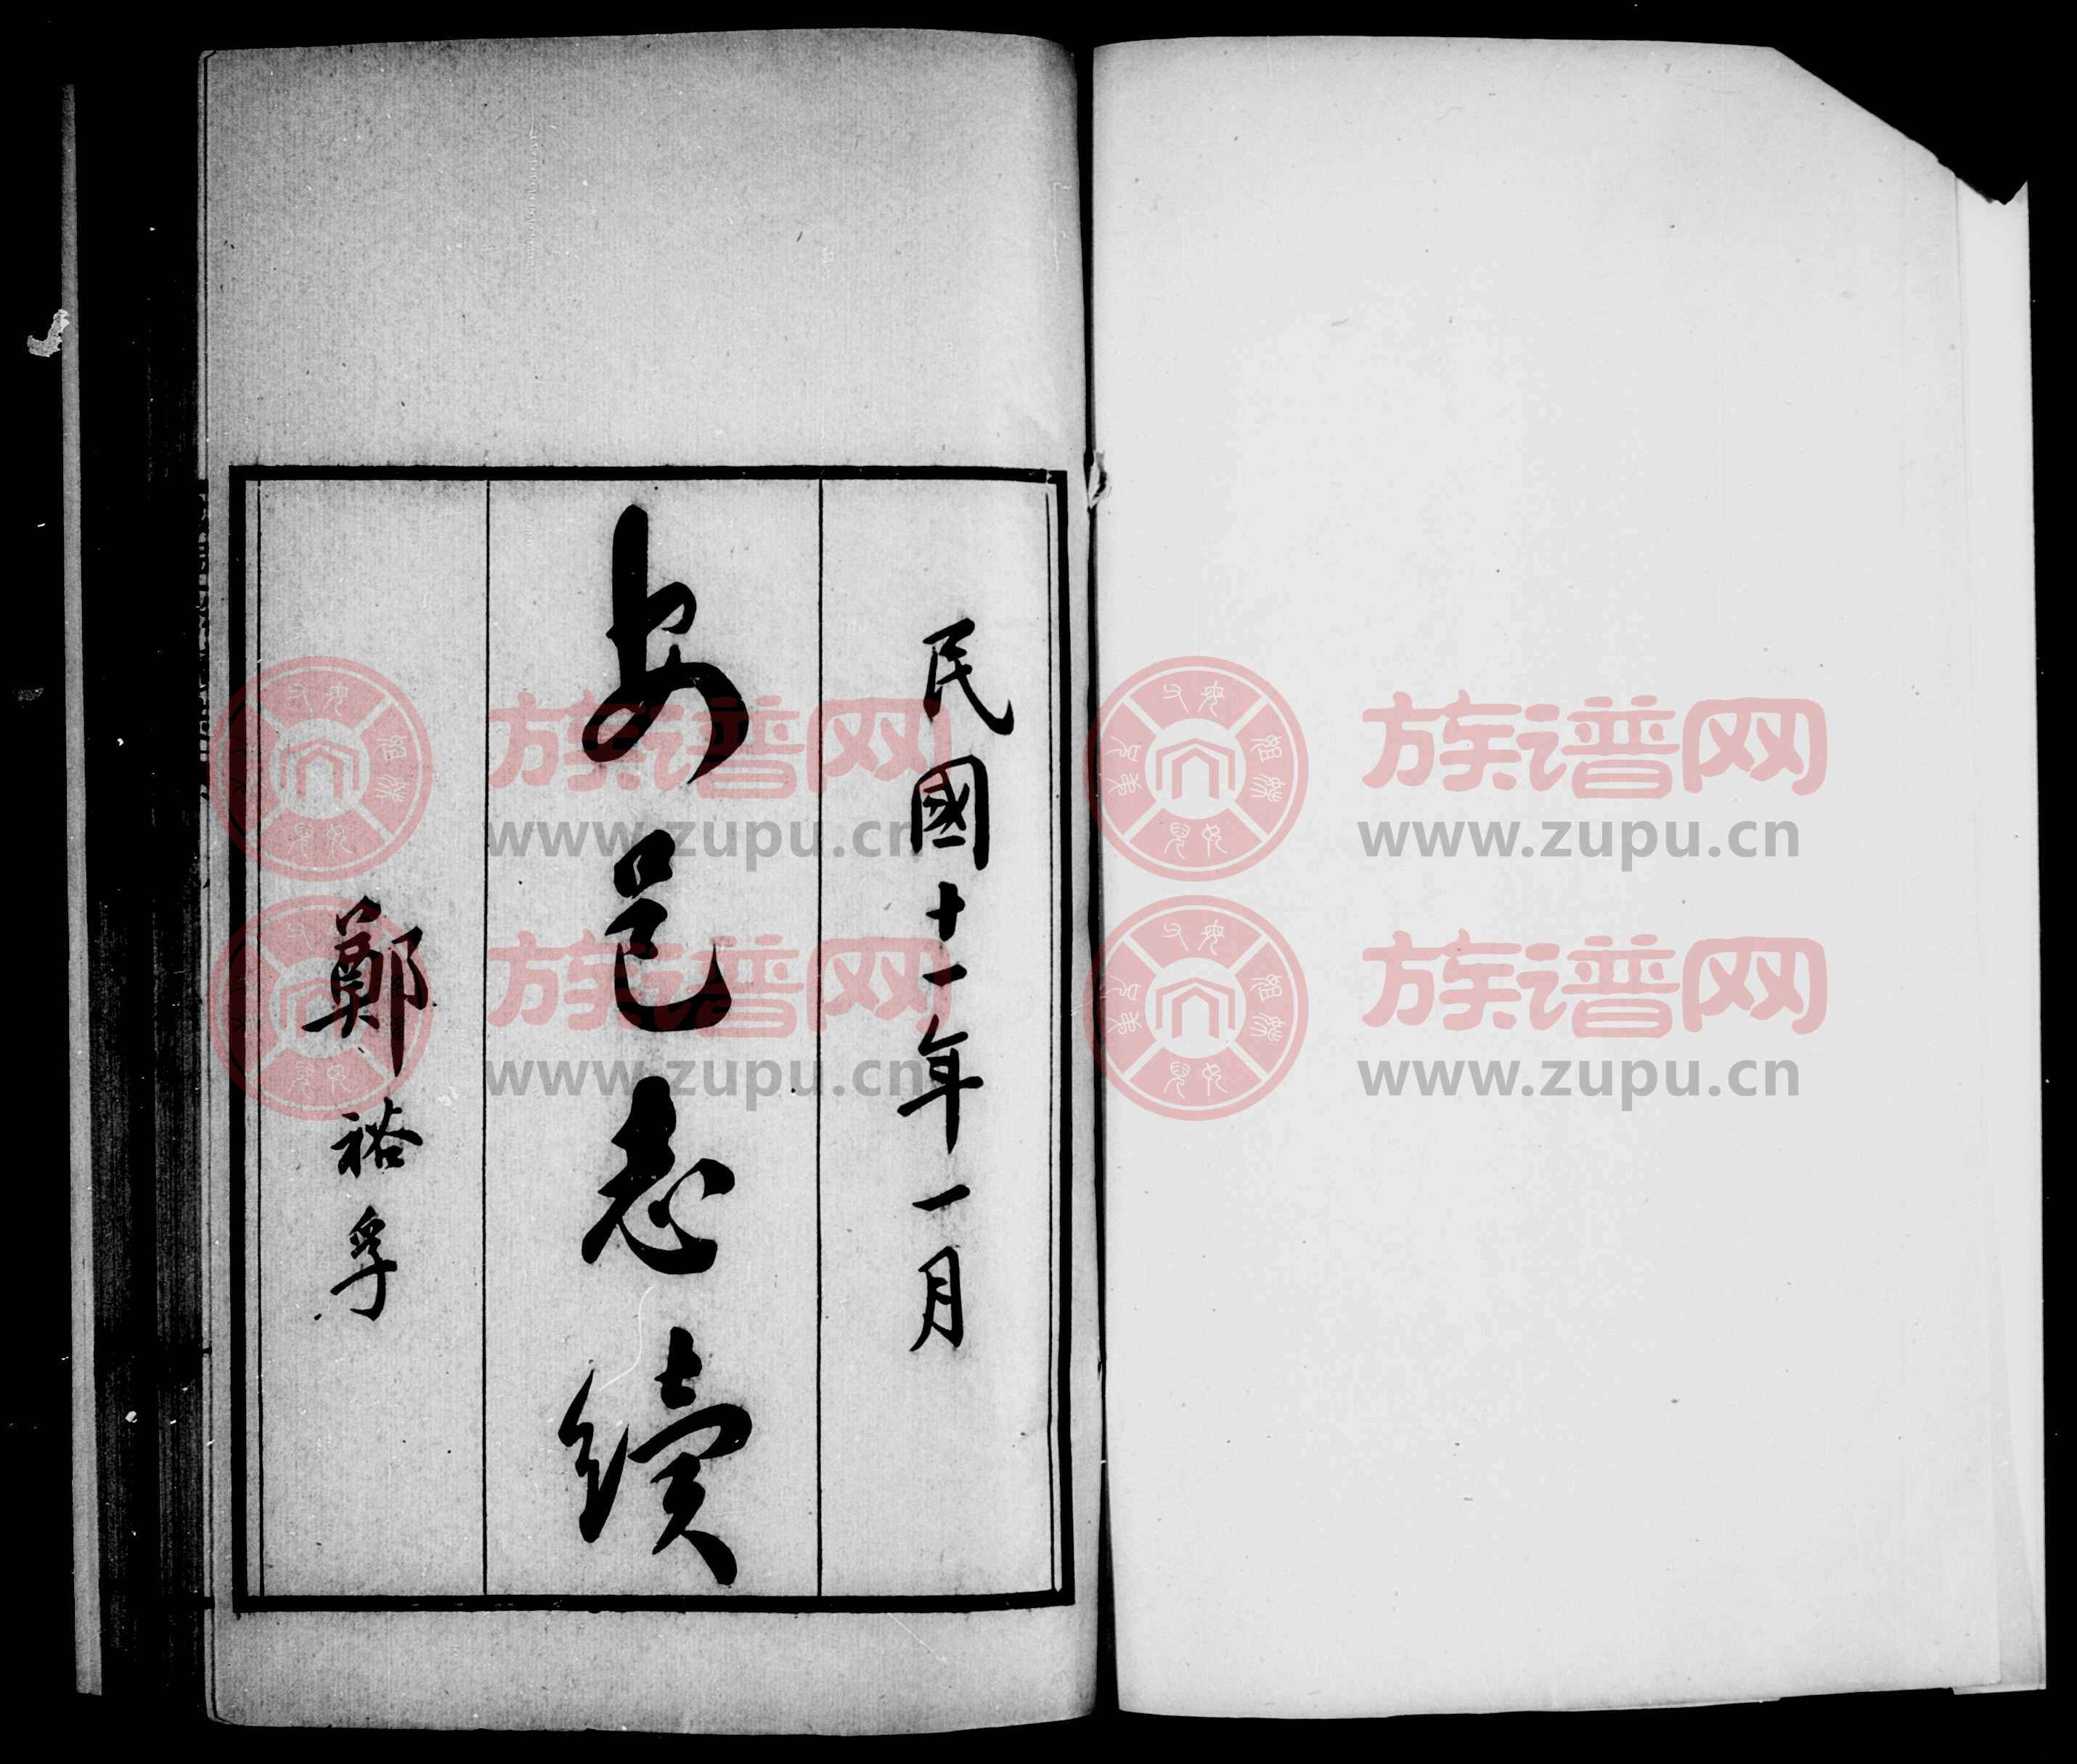 民國十一年一月
安邑志續
鄭裕孚
族谱网
www.zupu.cn
族谱网
www.zupu.cn
族谱网
www.zupu.cn
族谱网
www.zupu.cn